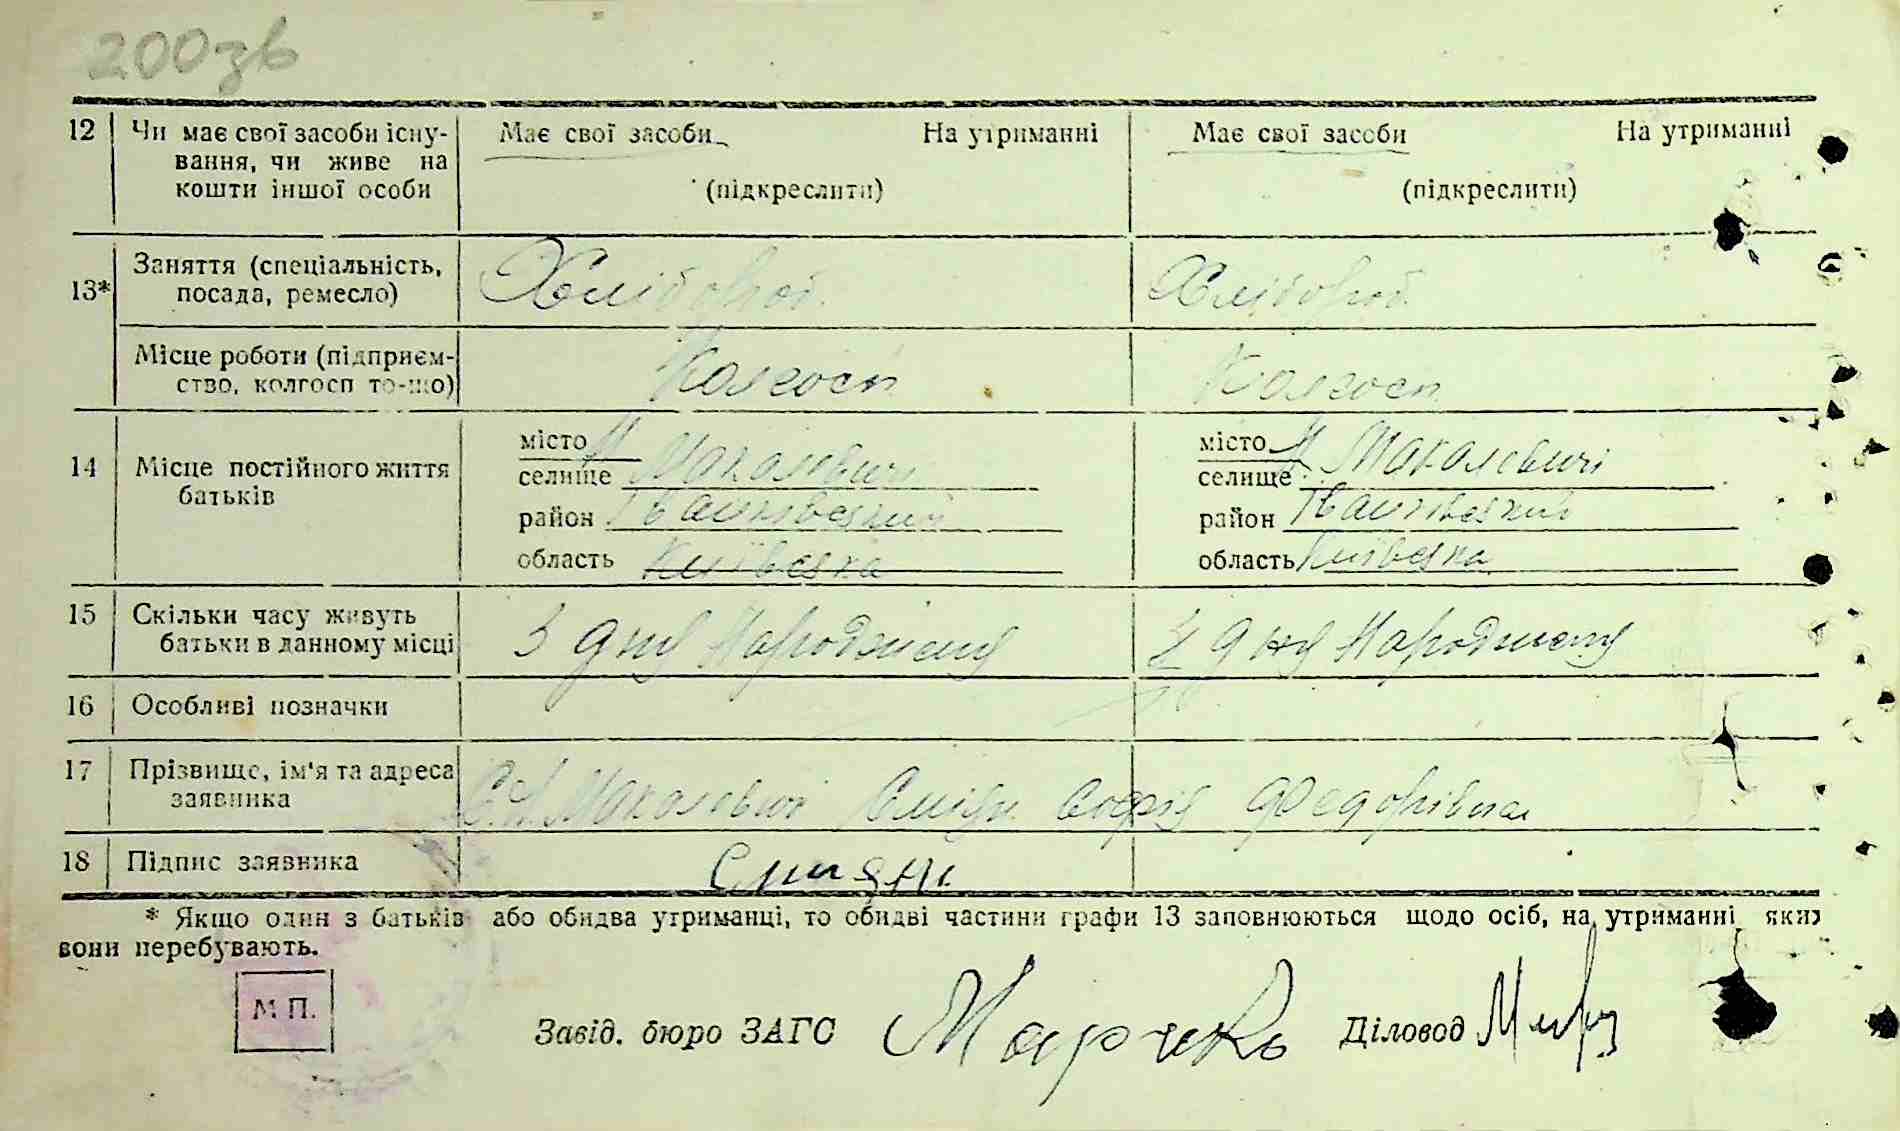 200зв
12 Чи має свої засоби існу- Має свої засоби На утриманні Має свої засоби На утриманні
вання, чи живе на
кошти іншої особи (підкреслити) (підкреслити)
13* Заняття (спеціальність, Хлібороб Хлібороб
посада, ремесло)
Місце роботи (підприєм- Колгосп Колгосп
ство, колгосп то-що)
14 Місце постійного життя місто місто
батьків селище Макаловичі селище Макаловичі
район Іванківський район Іванківський
область Київська область Київська
15 Скільки часу живуть З дня Народження З дня Народження
батьки в данному місці
16 Особливі позначки
17 Прізвище, ім'я та адреса Макаловичі Софія Федорівна
заявника
18 Підпис заявника
* Якщо один з батьків або обидва утриманці, то обидві частини графи 13 заповнюються щодо осіб, на утриманні яких
вони перебувають.
М П.
Завід. бюро ЗАГС Діловод